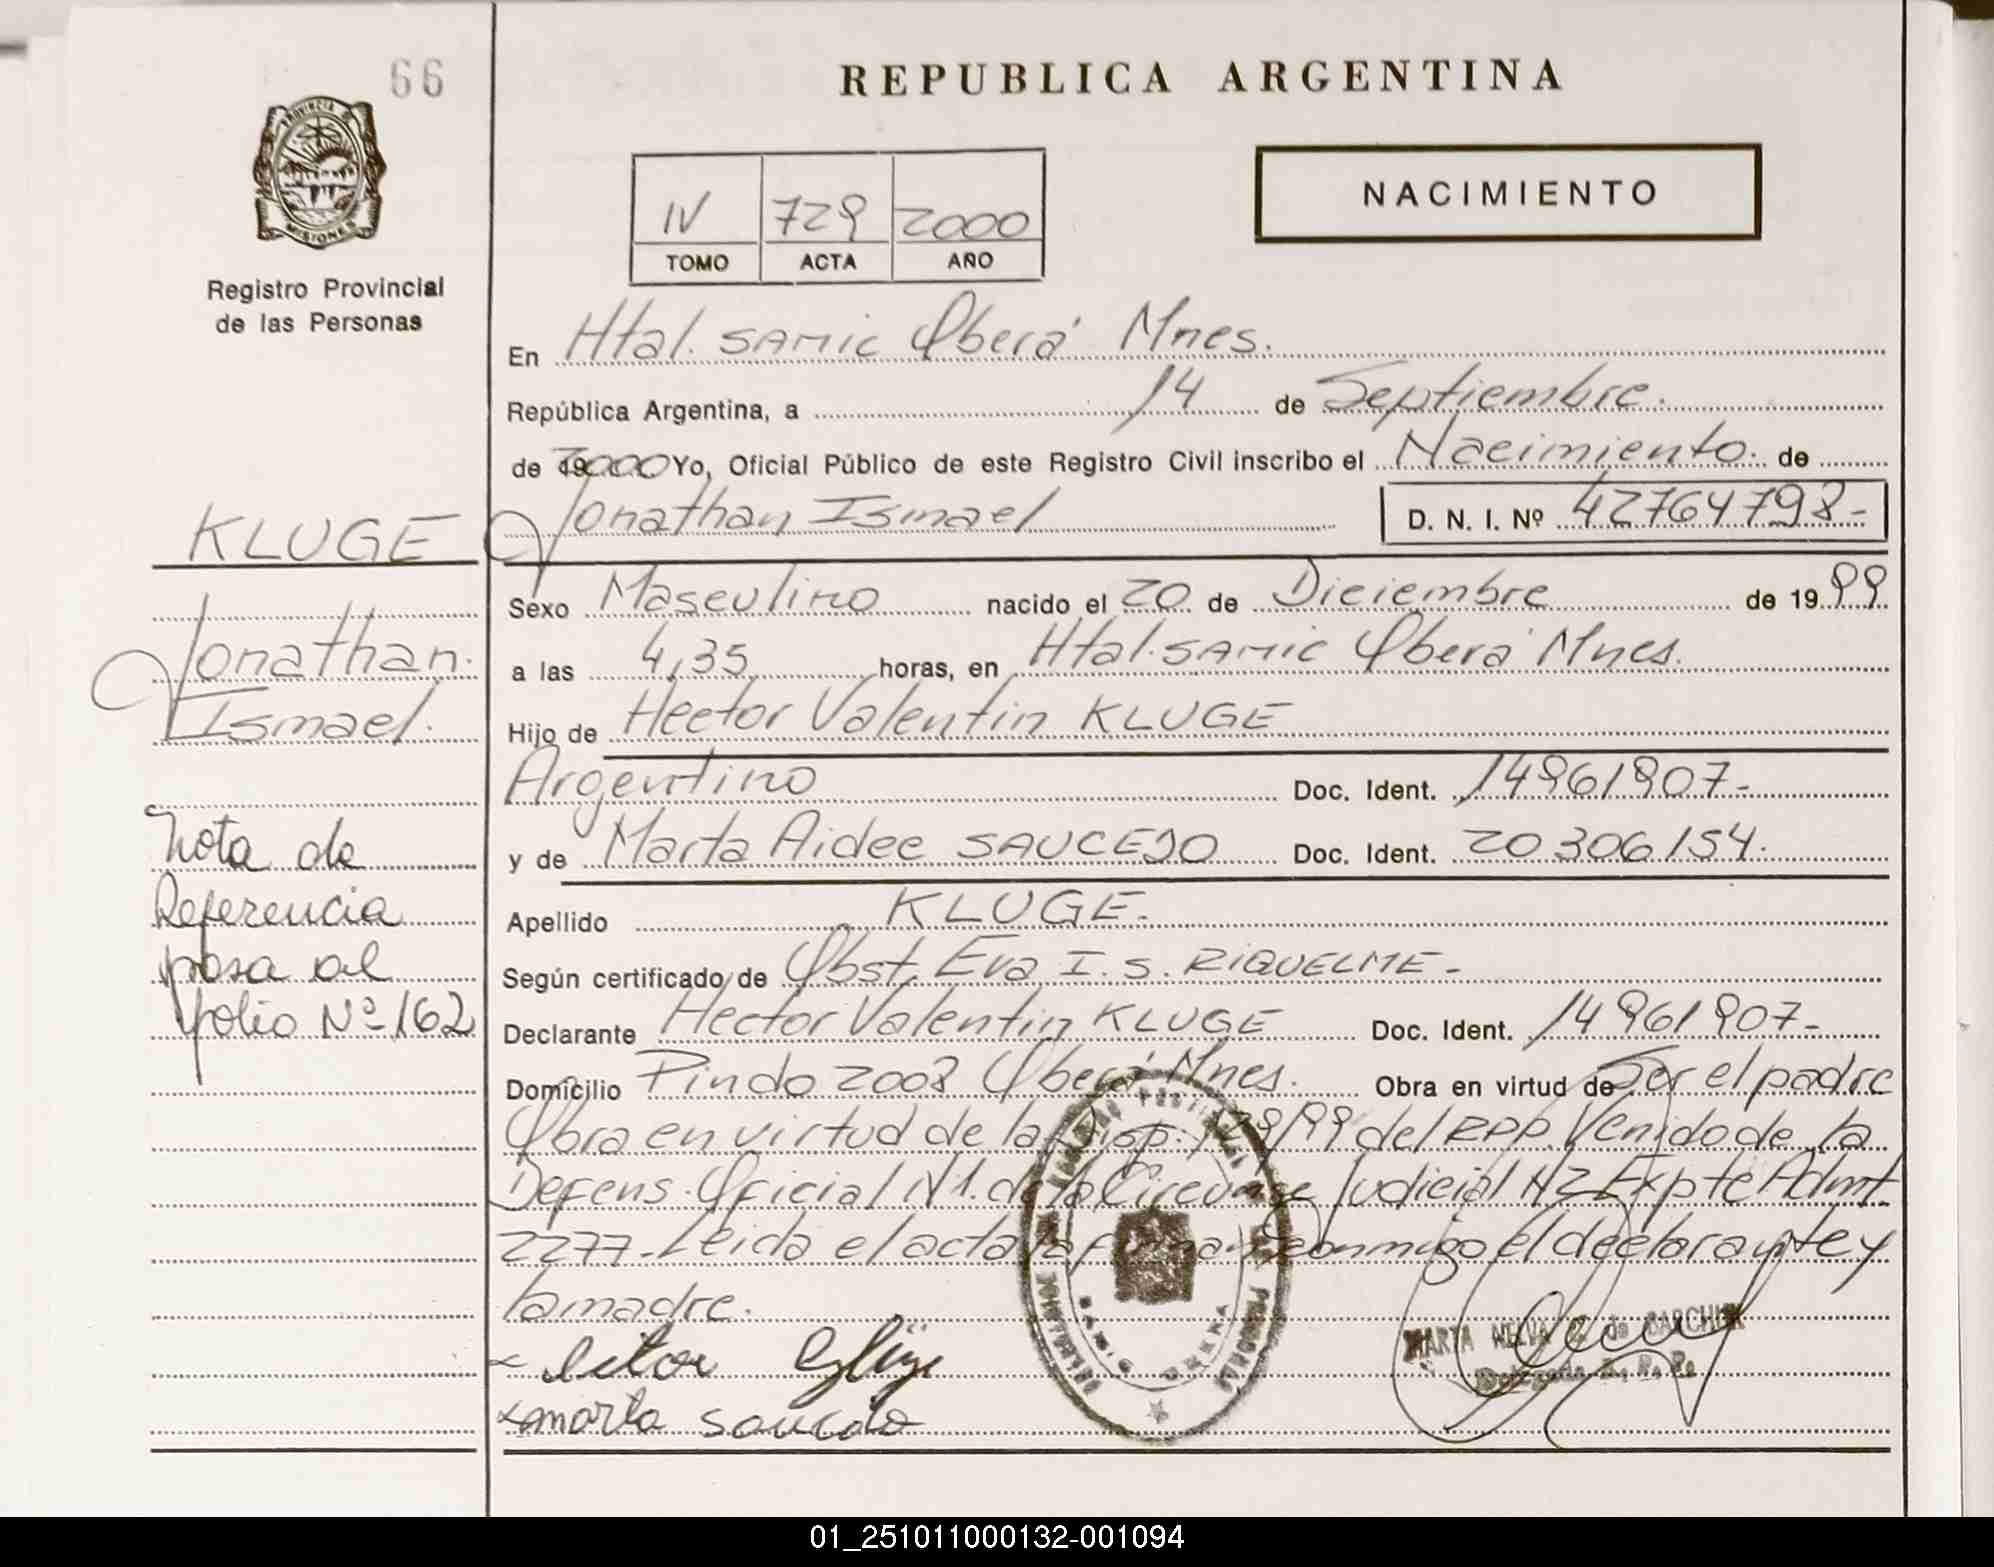 66
REPUBLICA ARGENTINA
PROVINCIA DE
MISIONES
Registro Provincial
de las Personas
IV 729 2000
TOMO ACTA AÑO
NACIMIENTO
En Htal. SAMIC Oberá Mnes.
República Argentina, a 14 de Septiembre.
de 2000 Yo, Oficial Público de este Registro Civil inscribo el Nacimiento. de
Jonathan Ismael D. N. I. Nº 42764798-
KLUGE
Jonathan.
Ismael.
Sexo Masculino nacido el 20 de Diciembre de 1999
a las 4,35 horas, en Htal. SAMIC Oberá Mnes.
Hijo de Hector Valentin KLUGE
Argentino Doc. Ident. 14961907-
y de Marta Aidee SAUCEDO Doc. Ident. 20306154.
Nota de
Referencia
pasa al
folio Nº 162
Apellido KLUGE.
Según certificado de Obst. Eva I. S. RIQUELME-
Declarante Hector Valentin KLUGE Doc. Ident. 14961907-
Domicilio Pindo 2008 Oberá Mnes. Obra en virtud de Ser el padre
Obra en virtud de la Disp. /99 del RPP. Venido de la
Defens. Oficial N1. de la Circunsc Judicial N2 Expte Admt.
2277- Leida el acta la firman conmigo el declarante y
la madre.
x marta saucedo
MARTA de
Delegada R. P. P.
01_251011000132-001094